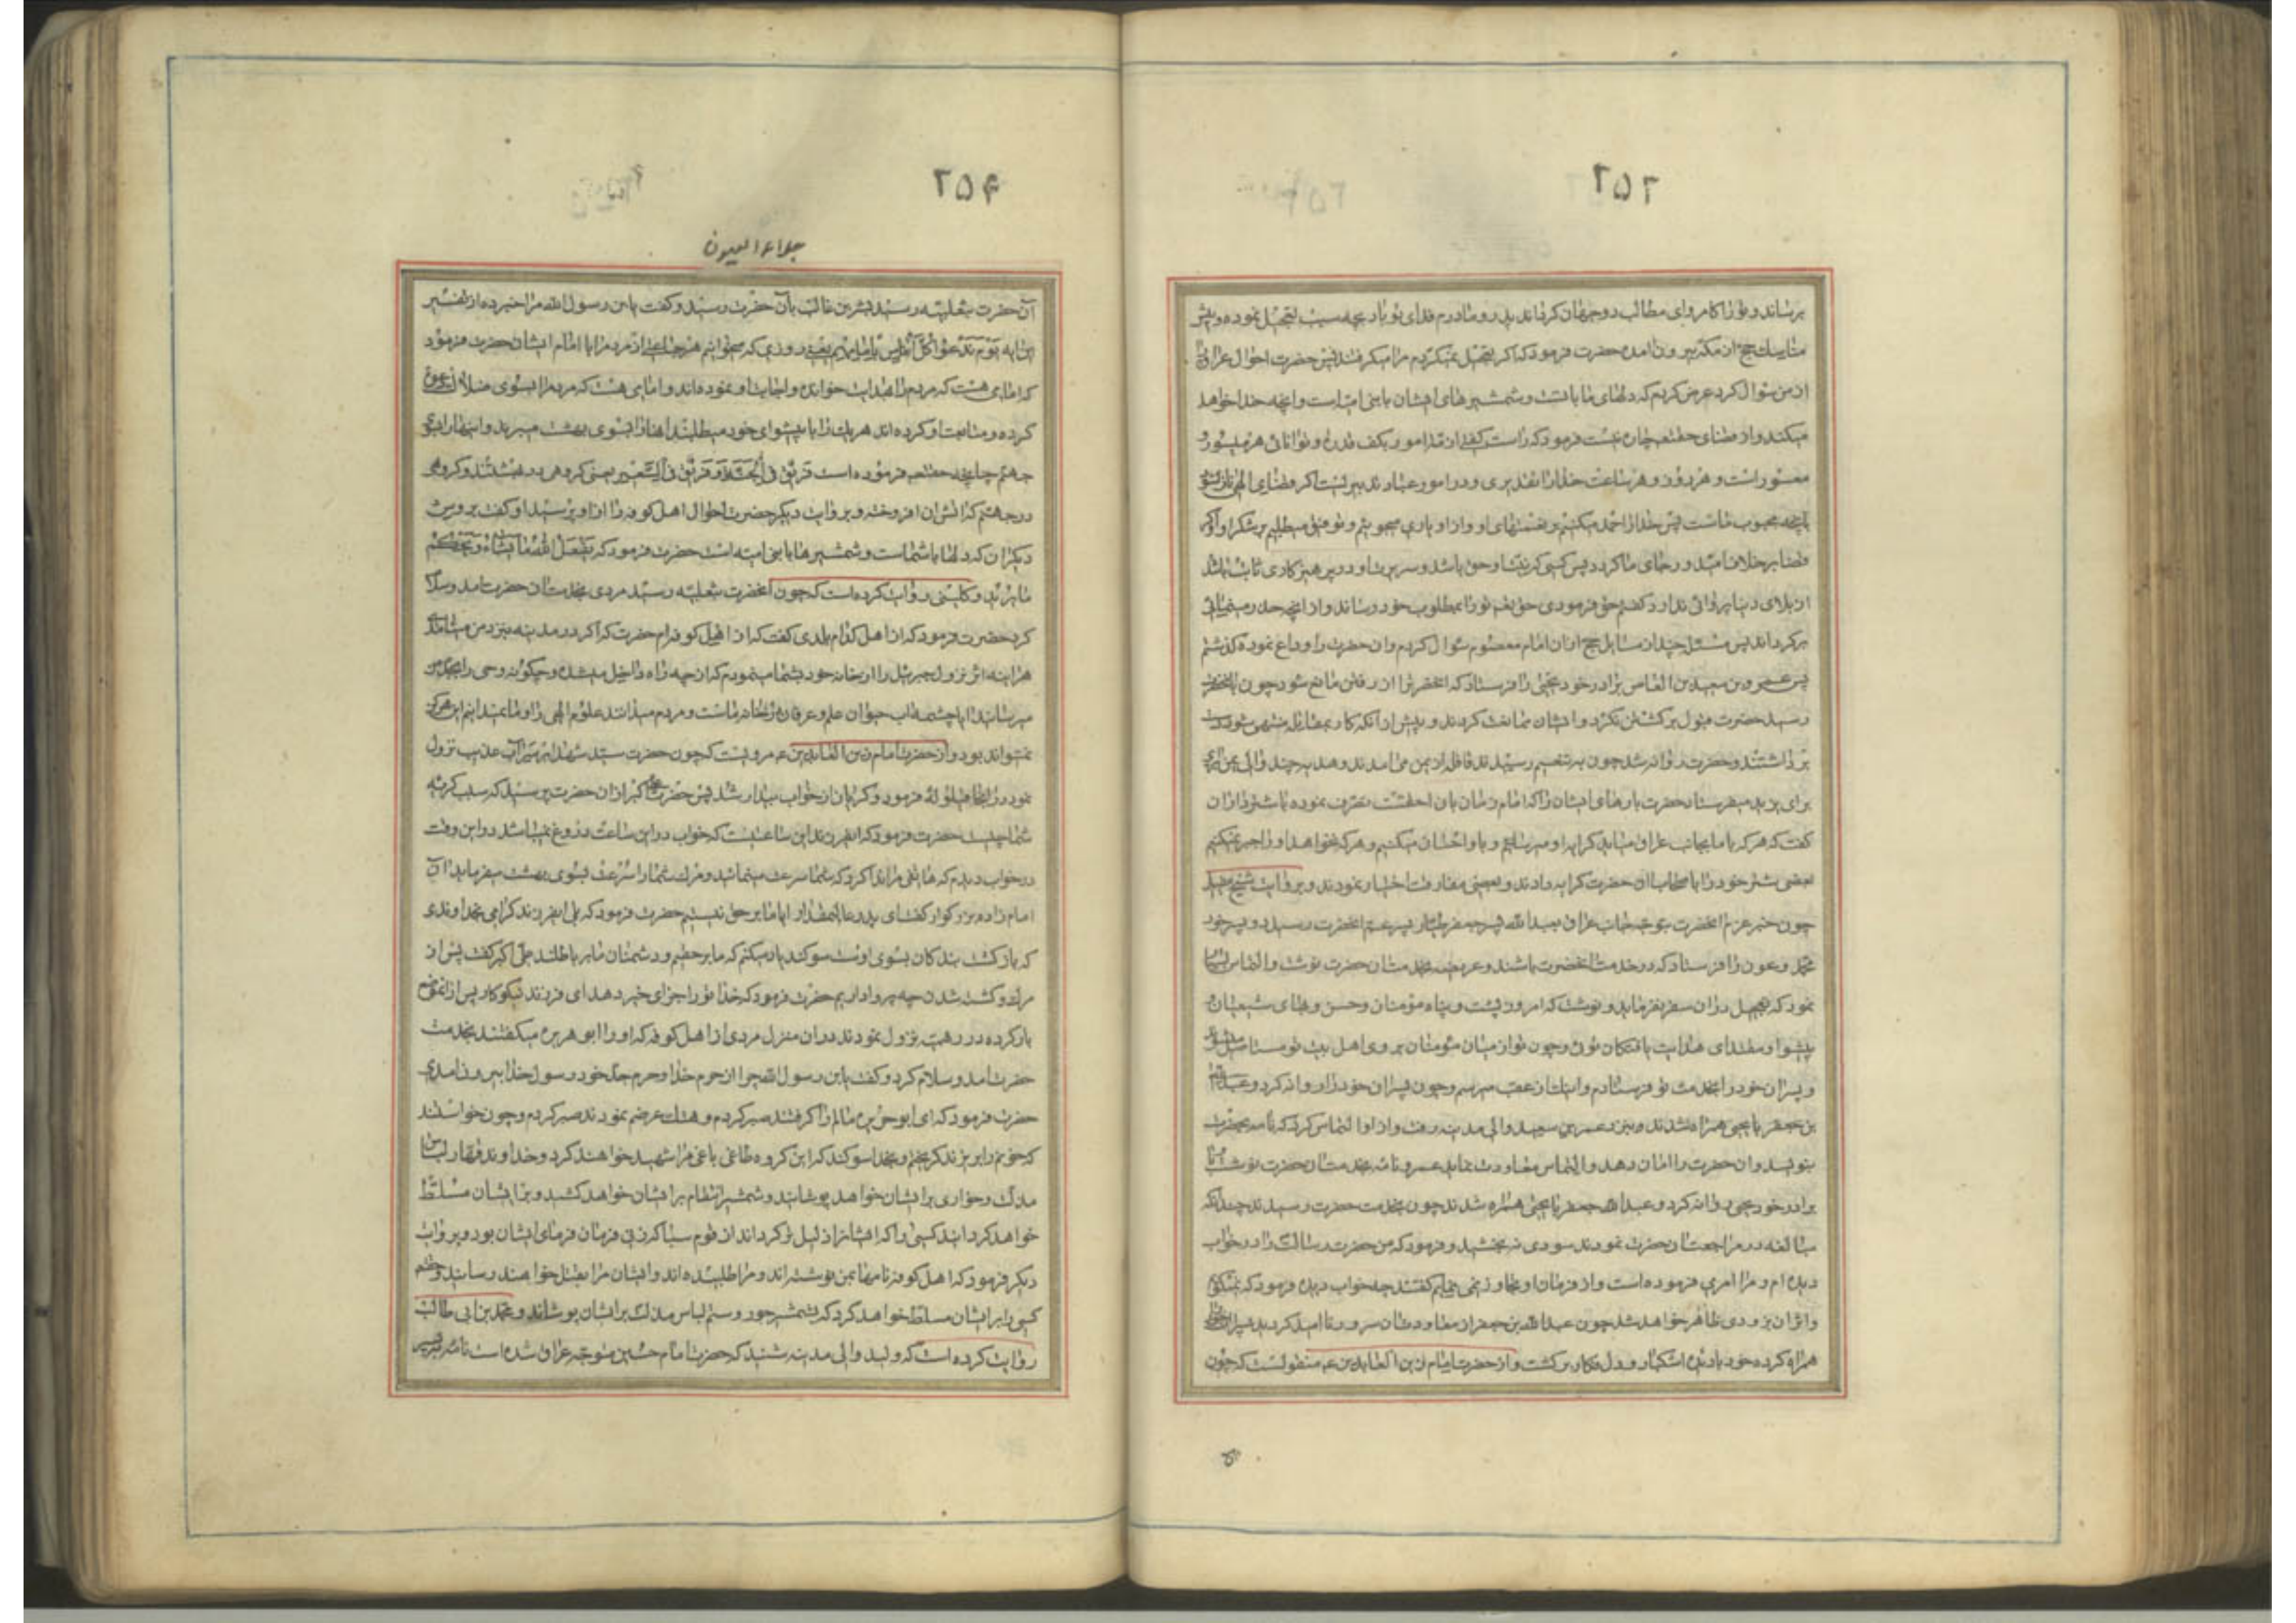 ۲۵۲
برساند و تو را کامروای مطالب دو جهان گرداند پدر و مادرم فدای تو باد بچه سبب تعجیل نموده و پیش
مناسک حج از مکه بیرون آمده حضرت فرمود که اگر تعجیل نمیکردم مرا میکرفتند پس حضرت احوال عراق
از من سؤال کرد عرض کردم که دلهای ما با تست و شمشیرهای ایشان با بنی امیه است و آنچه خدا خواهد
میکند و از قضای حقتعالی چاره نیست فرمود که راست گفتی ازمه امور بکف قدرت و توانائی
است و هر روز و هر ساعت خدا را تقدیری و در امور عباد تدبیریست اگر قضای الهی نازل شود
بآنچه محبوب ماست پس خدا را حمد میکنیم بر نعمتهای او و از او یاری میجوئیم و توفیق میطلبیم بر شکر او و اگر
قضا بر خلاف امید و رجای ما گردد پس کسی که نیت او حق باشد و سریرت او در پرهیزکاری ثابت باشد
از بلای دنیا پروائی ندارد گفتم حق فرمودی حقتعالی تو را بمطلوب خود رساند و از آنچه حذر مینمائی
برگرداند پس مسئله چند از مسایل حج از آن امام معصوم سؤال کردم و آن حضرت را وداع نموده گذشتم
پس عمرو بن سعید بن العاص برادر خود یحیی را فرستاد که آنحضرت را از رفتن مانع شود چون بآنحضرت
رسید حضرت قبول برگشتن نکرد و ایشان ممانعت کردند و پیش از آنکه کار بمقاتله منتهی شود دست
برداشتند و حضرت روانه شد چون به تنعیم رسیدند قافله از یمن می آمدند و هدیه چند والی یمن
برای یزید میفرستاد حضرت بارهای ایشان را که امام زمان بآن احق است تصرف نموده با شترداران
گفت که هر که با ما بجانب عراق میآید کرایه او میرسانیم و با او احسان میکنیم و هر که نخواهد او را جبر نمیکنیم
بعضی شتر خود را باصحاب آن حضرت کرایه دادند و بعضی مفارقت اختیار نمودند و بروایت شیخ مفید
چون خبر عزم آنحضرت بتوجه جانب عراق بعبدالله پسر جعفر طیار پسر عم آنحضرت رسید دو پسر خود
محمد و عون را فرستاد که در خدمت آنحضرت باشند و عریضه بخدمت آن حضرت نوشت و التماس
نمود که تعجیل در آن سفر نفرماید و نوشت که امروز پشت و پناه مؤمنان و حسن رجای شیعیان
پیشوا و مقتدای هدایت یافتگان توئی و چون تو از میان مؤمنان بروی اهل بیت تو مستاصل میشوند
و پسران خود را بخدمت تو فرستادم و اینک از عقب میرسم و چون پسران خود را روانه کرد و عبدالله
بن جعفر با یحیی همراه شدند و بنزد عمر بن سعید والی مدینه رفت و از او التماس کرد که نامه بحضرت
بنویسد و آن حضرت را امان دهد و التماس معاودت نماید عمرو نامه بخدمت آن حضرت نوشت و با
برادر خود یحیی روانه کرد و عبدالله جعفر با یحیی همراه شدند چون بخدمت حضرت رسیدند چندانکه
مبالغه در مراجعت آن حضرت نمودند سودی نبخشید و فرمود که من حضرت رسالت را در خواب
دیده ام و مرا امری فرموده است و از فرمان او تجاوز نمی نمایم گفتند چه خواب دیده فرمود که نمیگویم
و اثر آن بزودی ظاهر خواهد شد چون عبدالله بن جعفر از معاودت آن سرور ناامید گردید پسران خود را
همراه کرده خود با دیده اشکبار و دل فکار برگشت و از حضرت امام زین العابدین ع منقولست که چون
۲۵۴
جلاء العیون
آن حضرت بثعلبیه رسید بشر بن غالب بآن حضرت رسید و گفت یابن رسول الله مرا خبر ده از تفسیر
این آیه یوم ندعوا کل اناس بامامهم یعنی روزی که میخوانیم هر جماعتی از مردم را با امام ایشان حضرت فرمود
که امامی هست که مردم را بهدایت خوانده و اجابت او نموده اند و امامی هست که مردم را بسوی ضلالت دعوت
کرده و متابعت او کرده اند هر یک را با پیشوای خود میطلبند آنها را بسوی بهشت میبرند و اینها را بسوی
جهنم چنانچه حقتعالی فرموده است فریق فی الجنة و فریق فی السعیر یعنی گروهی در بهشتند و گروهی
در جهنم که آتش آن افروخته و بروایت دیگر حضرت احوال اهل کوفه را از او پرسید او گفت بروش
دیگران که دلها با شماست و شمشیرها با بنی امیه است حضرت فرمود که یفعل الله ما یشاء و یحکم
ما یرید و کلینی روایت کرده است که چون آنحضرت بثعلبیه رسید مردی بخدمت آن حضرت آمد و سلام
کرد حضرت فرمود که از اهل کدام بلدی گفت که از اهل کوفه ام حضرت که اگر در مدینه بنزد من میآمدی
هر آینه اثر نزول جبرئیل را از خانه خود بشما مینمودم که از چه راه داخل میشده و چگونه وحی را بجد من
میرسانید آیا چشمه آب حیوان علم و عرفان در خانه ماست و مردم میدانند علوم الهی را و ما نمیدانیم این هرگز
نمیتواند بود و از حضرت امام زین العابدین ع مرویست که چون حضرت سید شهدا بر سر آب عذیب نزول
نمود در آنجا قیلوله فرمود و گریان از خواب بیدار شد پس حضرت علی اکبر از آن حضرت پرسید که سبب گریه
شما چیست حضرت فرمود که ای فرزند این ساعتیست که خواب در این ساعت دروغ نمیباشد در این وقت
در خواب دیدم که هاتفی مرا ندا کرد که شما سرعت مینمائید و مرگ شما را بسرعت بسوی بهشت میبرد
امام زاده بزرگوار گفت ای پدر عالیمقدار آیا ما بر حق نیستیم حضرت فرمود که بلی ای فرزند گرامی بخداوندی
که بازگشت بندگان بسوی اوست سوگند یاد میکنم که ما بر حقیم و دشمنان ما بر باطلند علی اکبر گفت پس از
مردن و کشته شدن چه پروا داریم حضرت فرمود که خدا تو را جزای خیر دهد ای فرزند نیکوکار پس از آن موضع
بار کرده در رهیمه نزول نمودند در آن منزل مردی از اهل کوفه که او را ابو هریره میگفتند بخدمت
حضرت آمد و سلام کرد و گفت یابن رسول الله چرا از حرم خدا و حرم جد خود رسول خدا بیرون آمدی
حضرت فرمود که ای ابو هریره مالم را گرفتند صبر کردم و هتک عرضم نمودند صبر کردم و چون خواستند
که خونم را بریزند گریختم و بخدا سوگند که این گروه طاغی باغی مرا شهید خواهند کرد و خداوند قهار لباس
مذلت و خواری بر ایشان خواهد پوشانید و شمشیر انتقام بر ایشان خواهد کشید و بر ایشان مسلط
خواهد گردانید کسی را که ایشان را ذلیل تر گرداند از قوم سبا که زنی فرمان فرمای ایشان بود و بروایت
دیگر فرمود که اهل کوفه نامها بمن نوشته اند و مرا طلبیده اند و ایشان مرا بقتل خواهند رسانید و حقتعالی
کسی را بر ایشان مسلط خواهد کرد که بشمشیر جور و ستم لباس مذلت بر ایشان پوشاند و محمد بن ابی طالب
روایت کرده است که ولید والی مدینه شنید که حضرت امام حسین متوجه عراق شده است نامه بپسر